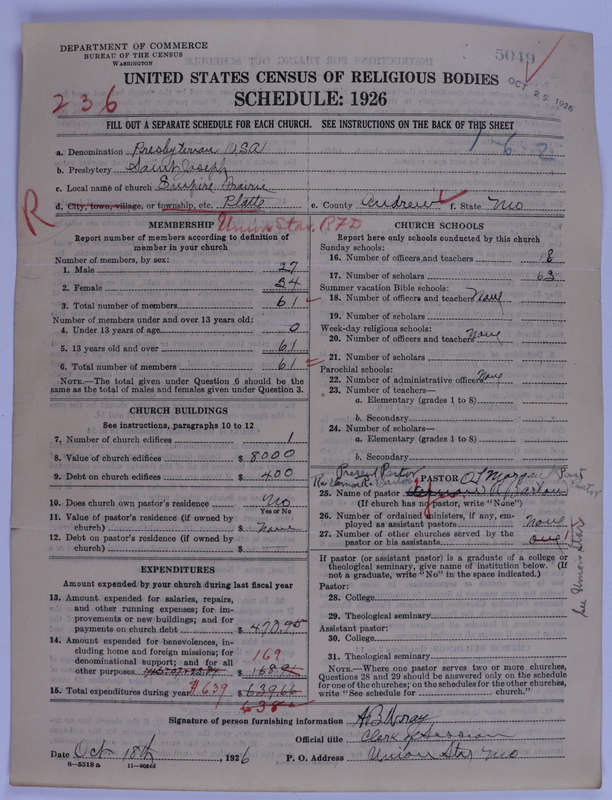 DEPARTMENT OF COMMERCE
BUREAU OF THE CENSUS
WASHINGTON
5049
OCT 25 1926
UNITED STATES CENSUS OF RELIGIOUS BODIES
236
SCHEDULE: 1926
FILL OUT A SEPARATE SCHEDULE FOR EACH CHURCH. SEE INSTRUCTIONS ON THE BACK OF THIS SHEET
1-6-2
a. Denomination Presbyterian USA
b. Presbytery Saint Joseph
c. Local name of church Empire Prairie
d. City, town, village, or township, etc. Platte e. County Andrew f. State Mo
R
Union Star, RFD
MEMBERSHIP
Report number of members according to definition of member in your church
Number of members, by sex:
1. Male 27
2. Female 34
3. Total number of members 61
Number of members under and over 13 years old:
4. Under 13 years of age 0
5. 13 years old and over 61
6. Total number of members 61
NOTE.—The total given under Question 6 should be
same as the total of males and females given under Question 3.
CHURCH BUILDINGS
See instructions, paragraphs 10 to 12
7. Number of church edifices 1
8. Value of church edifices $ 8000
9. Debt on church edifices $ 400
10. Does church own pastor's residence No
Yes or No
11. Value of pastor's residence (if owned by
church) $ None
12. Debt on pastor's residence (if owned by
church) $
EXPENDITURES
Amount expended by your church during last fiscal year
13. Amount expended for salaries, repairs,
and other running expenses; for im-
provements or new buildings; and for
payments on church debt $ 470.75
14. Amount expended for benevolences, in-
cluding home and foreign missions; for
denominational support; and for all
other purposes $ 168.91
169
15. Total expenditures during year $ 639.66
$639
638
CHURCH SCHOOLS
Report here only schools conducted by this church
Sunday schools:
16. Number of officers and teachers 8
17. Number of scholars 63
Summer vacation Bible schools:
18. Number of officers and teachers None
19. Number of scholars
Week-day religious schools:
20. Number of officers and teachers None
21. Number of scholars
Parochial schools:
22. Number of administrative officers None
23. Number of teachers—
a. Elementary (grades 1 to 8)
b. Secondary
24. Number of scholars—
a. Elementary (grades 1 to 8)
b. Secondary
Present Pastor
PASTOR
Morgan Past Pastor
25. Name of pastor
(If church has no pastor, write "None")
26. Number of ordained ministers, if any, em-
ployed as assistant pastors none
27. Number of other churches served by the
pastor or his assistants one 1
See Union Star
If pastor (or assistant pastor) is a graduate of a college or
theological seminary, give name of institution below. (If
not a graduate, write "No" in the space indicated.)
Pastor:
28. College
29. Theological seminary
Assistant pastor:
30. College
31. Theological seminary
NOTE.—Where one pastor serves two or more churches,
Questions 28 and 29 should be answered only on the schedule
for one of the churches; on the schedules for the other churches,
write "See schedule for church."
Signature of person furnishing information
Official title Clerk of Session
Date Oct 18th, 1926 P. O. Address Union Star Mo
6-5518a 11-9056d